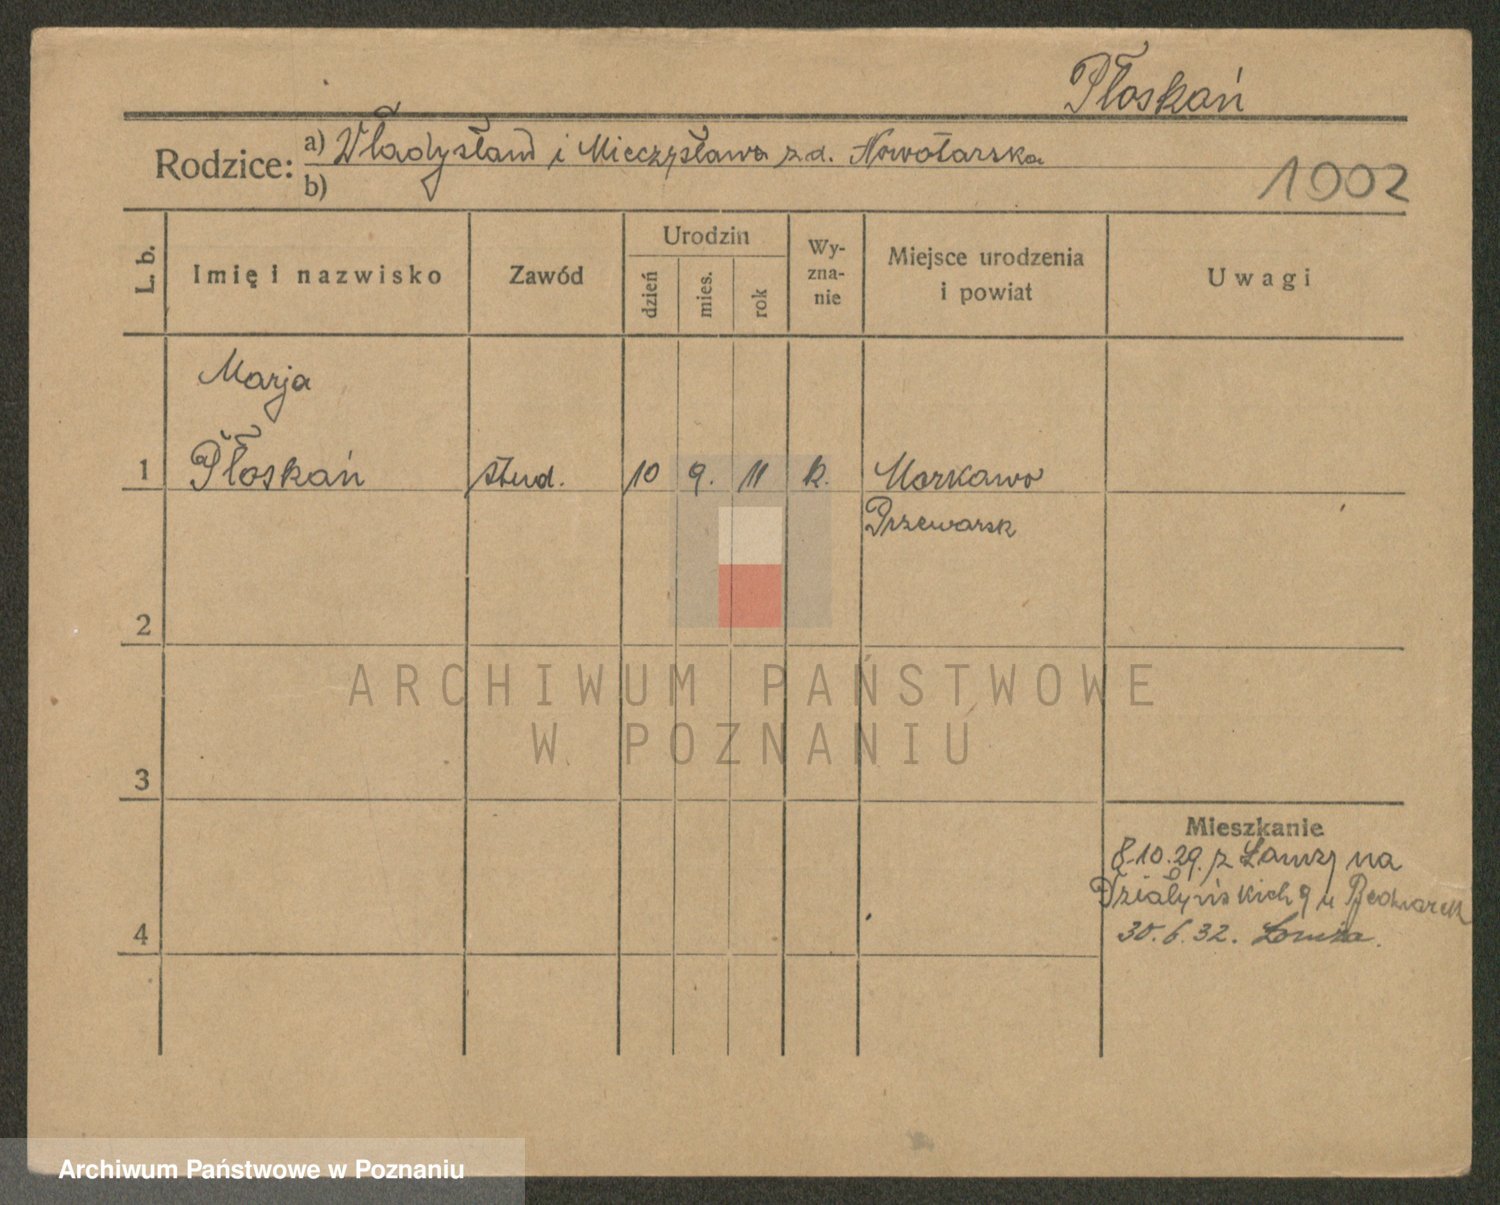 Płoskań
Rodzice: a) Władysław i Mieczysława z d. Nowotarska
b)
1002
L. b. Imię i nazwisko Zawód Urodzin dzień mies. rok Wyznanie Miejsce urodzenia i powiat Uwagi
Marja
1 Płoskań stud. 10 9. 11 k. Morkawo
Przewarsk
2
ARCHIWUM PAŃSTWOWE
W POZNANIU
3
Mieszkanie
8.10.29. z Łomży na
Działyńskich 9 u Bednarek
4 30.6.32. Łomża.
Archiwum Państwowe w Poznaniu